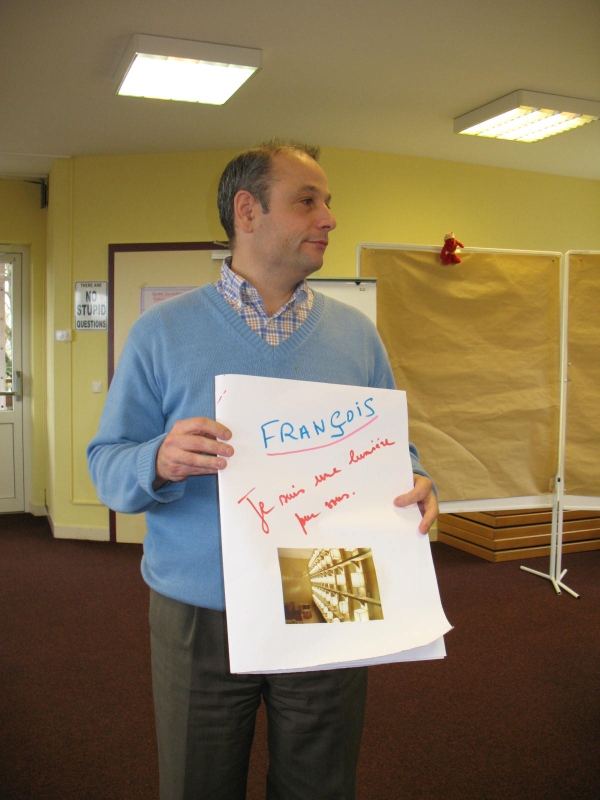 THERE ARE
NO
STUPID
QUESTIONS
FRANÇOIS
Je suis une lumière